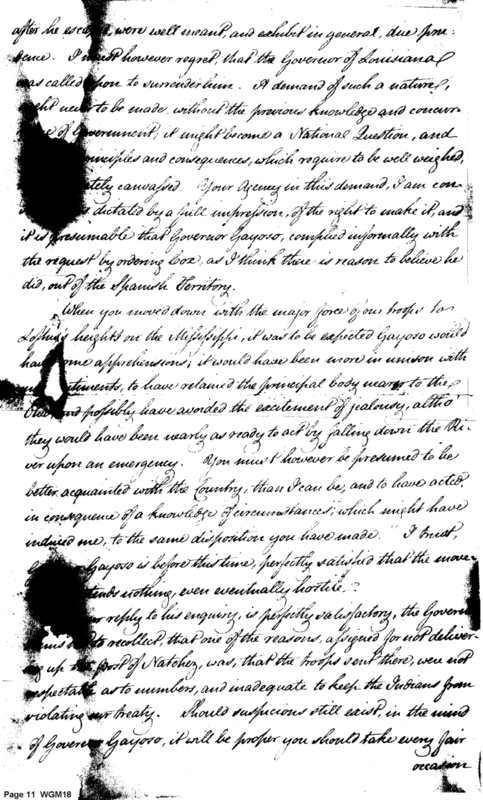 after he escaped, were well meant, and exhibit in general, due pru-
dence. I must however regret, that the Governor of Louisiana
was called upon to surrender him. A demand of such a nature,
ought never to be made, without the previous knowledge and concur-
of Government; it might become a National Question, and
principles and consequences, which require to be well weighed,
canvassed. Your Agency in this demand, I am con-
dictated by a full impression, of the right to make it, and
it is presumable that Governor Gayoso, complied informally with
the request by ordering Cox, as I think there is reason to believe he
did, out of the Spanish Territory.
When you moved down with the major force of our troops to
Loftus's heights on the Mississippi, it was to be expected Gayoso would
have some apprehensions; it would have been more in unison with
to have retained the principal body nearer to the
and possibly have avoided the excitement of jealousy, altho'
they would have been nearly as ready to act by falling down the Ri-
ver upon an emergency. You must however be presumed to be
better acquainted with the Country, than I can be, and to have acted
in consequence of a knowledge of circumstances, which might have
induced me, to the same disposition you have made. I trust,
Gayoso is before this time, perfectly satisfied that the move-
nothing, even eventually hostile.
reply to his enquiry, is perfectly satisfactory, the Govern
to recollect, that one of the reasons, assigned for not deliver-
ing up the post of Natchez, was, that the troops sent there, were not
respectable as to numbers, and inadequate to keep the Indians from
violating our treaty. Should suspicions still exist, in the mind
of Governor Gayoso, it will be proper you should take every fair
occasion
Page 11 WGM18